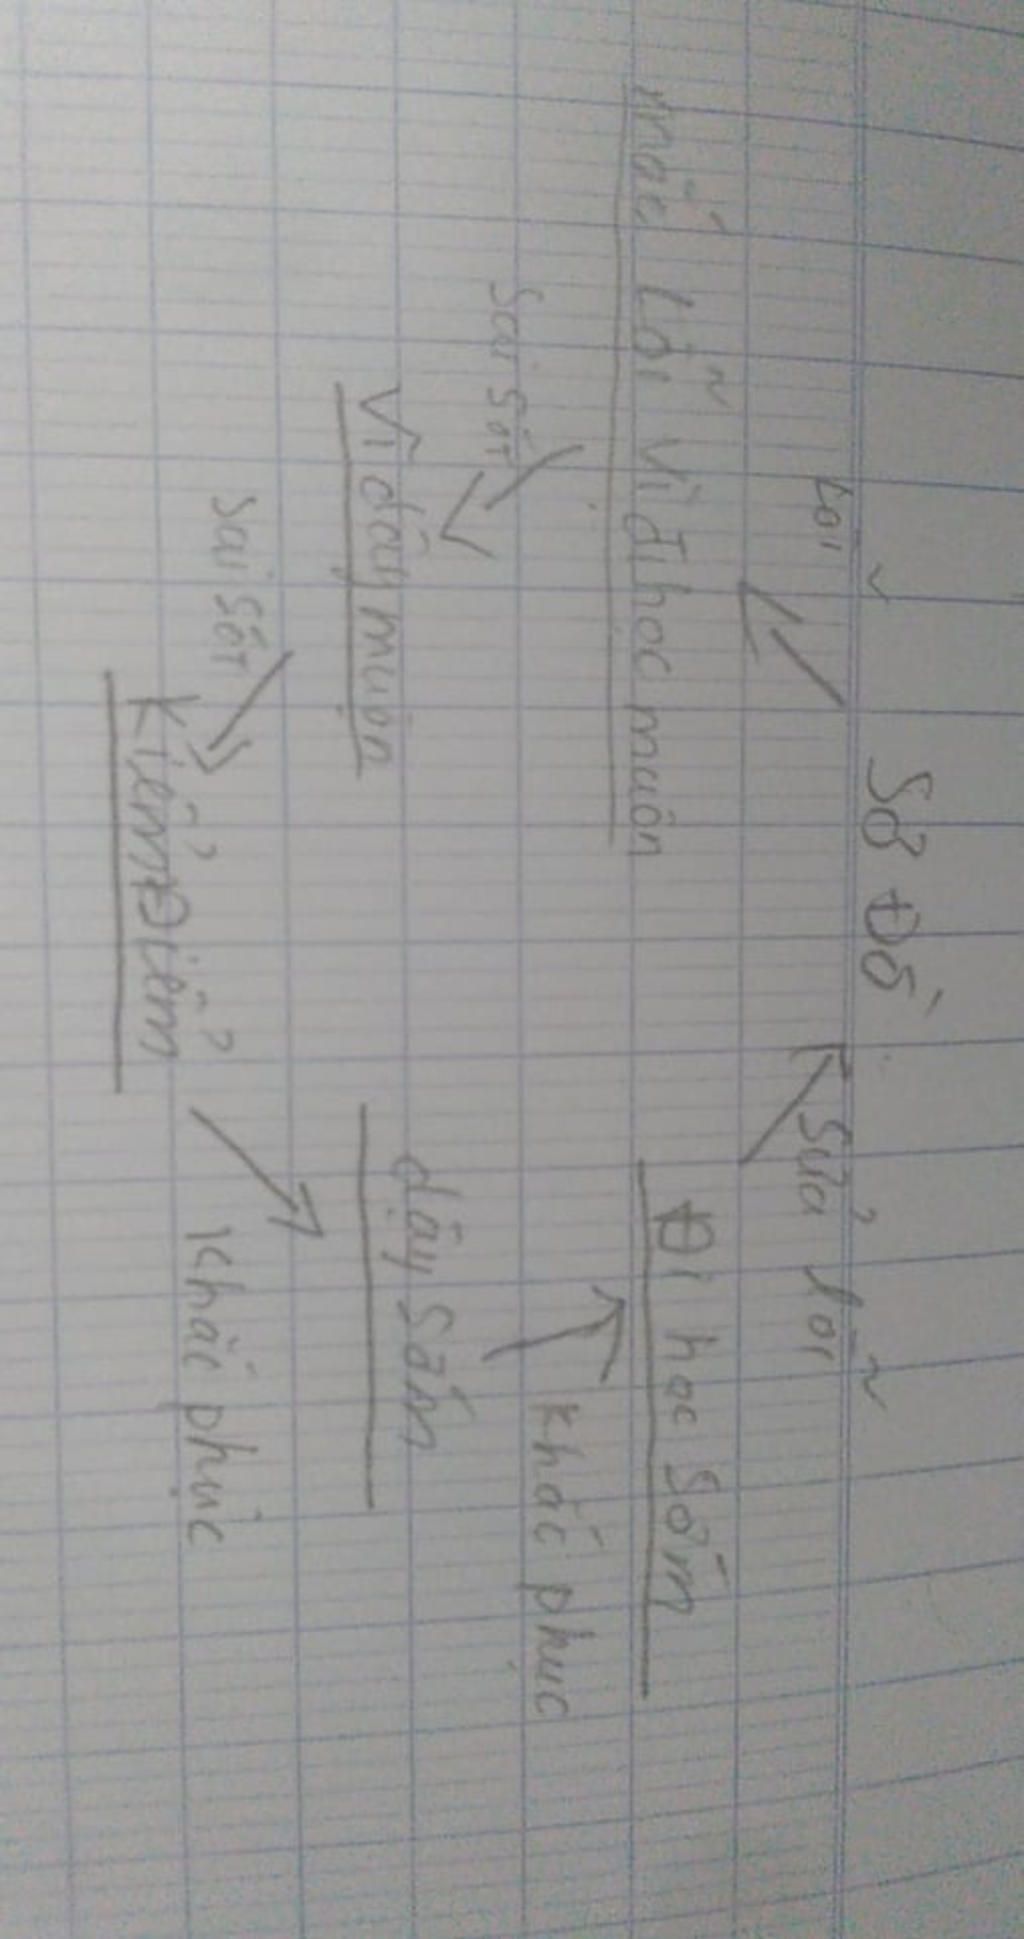 Sơ Đồ
Lỗi
Sửa lỗi
mắc Lỗi Vì đi học muộn
Đi học Sớm
Sai Sót
Khắc phục
Vì dậy muộn
dậy Sớm
Sai Sót
Khắc phục
Kiểm Điểm